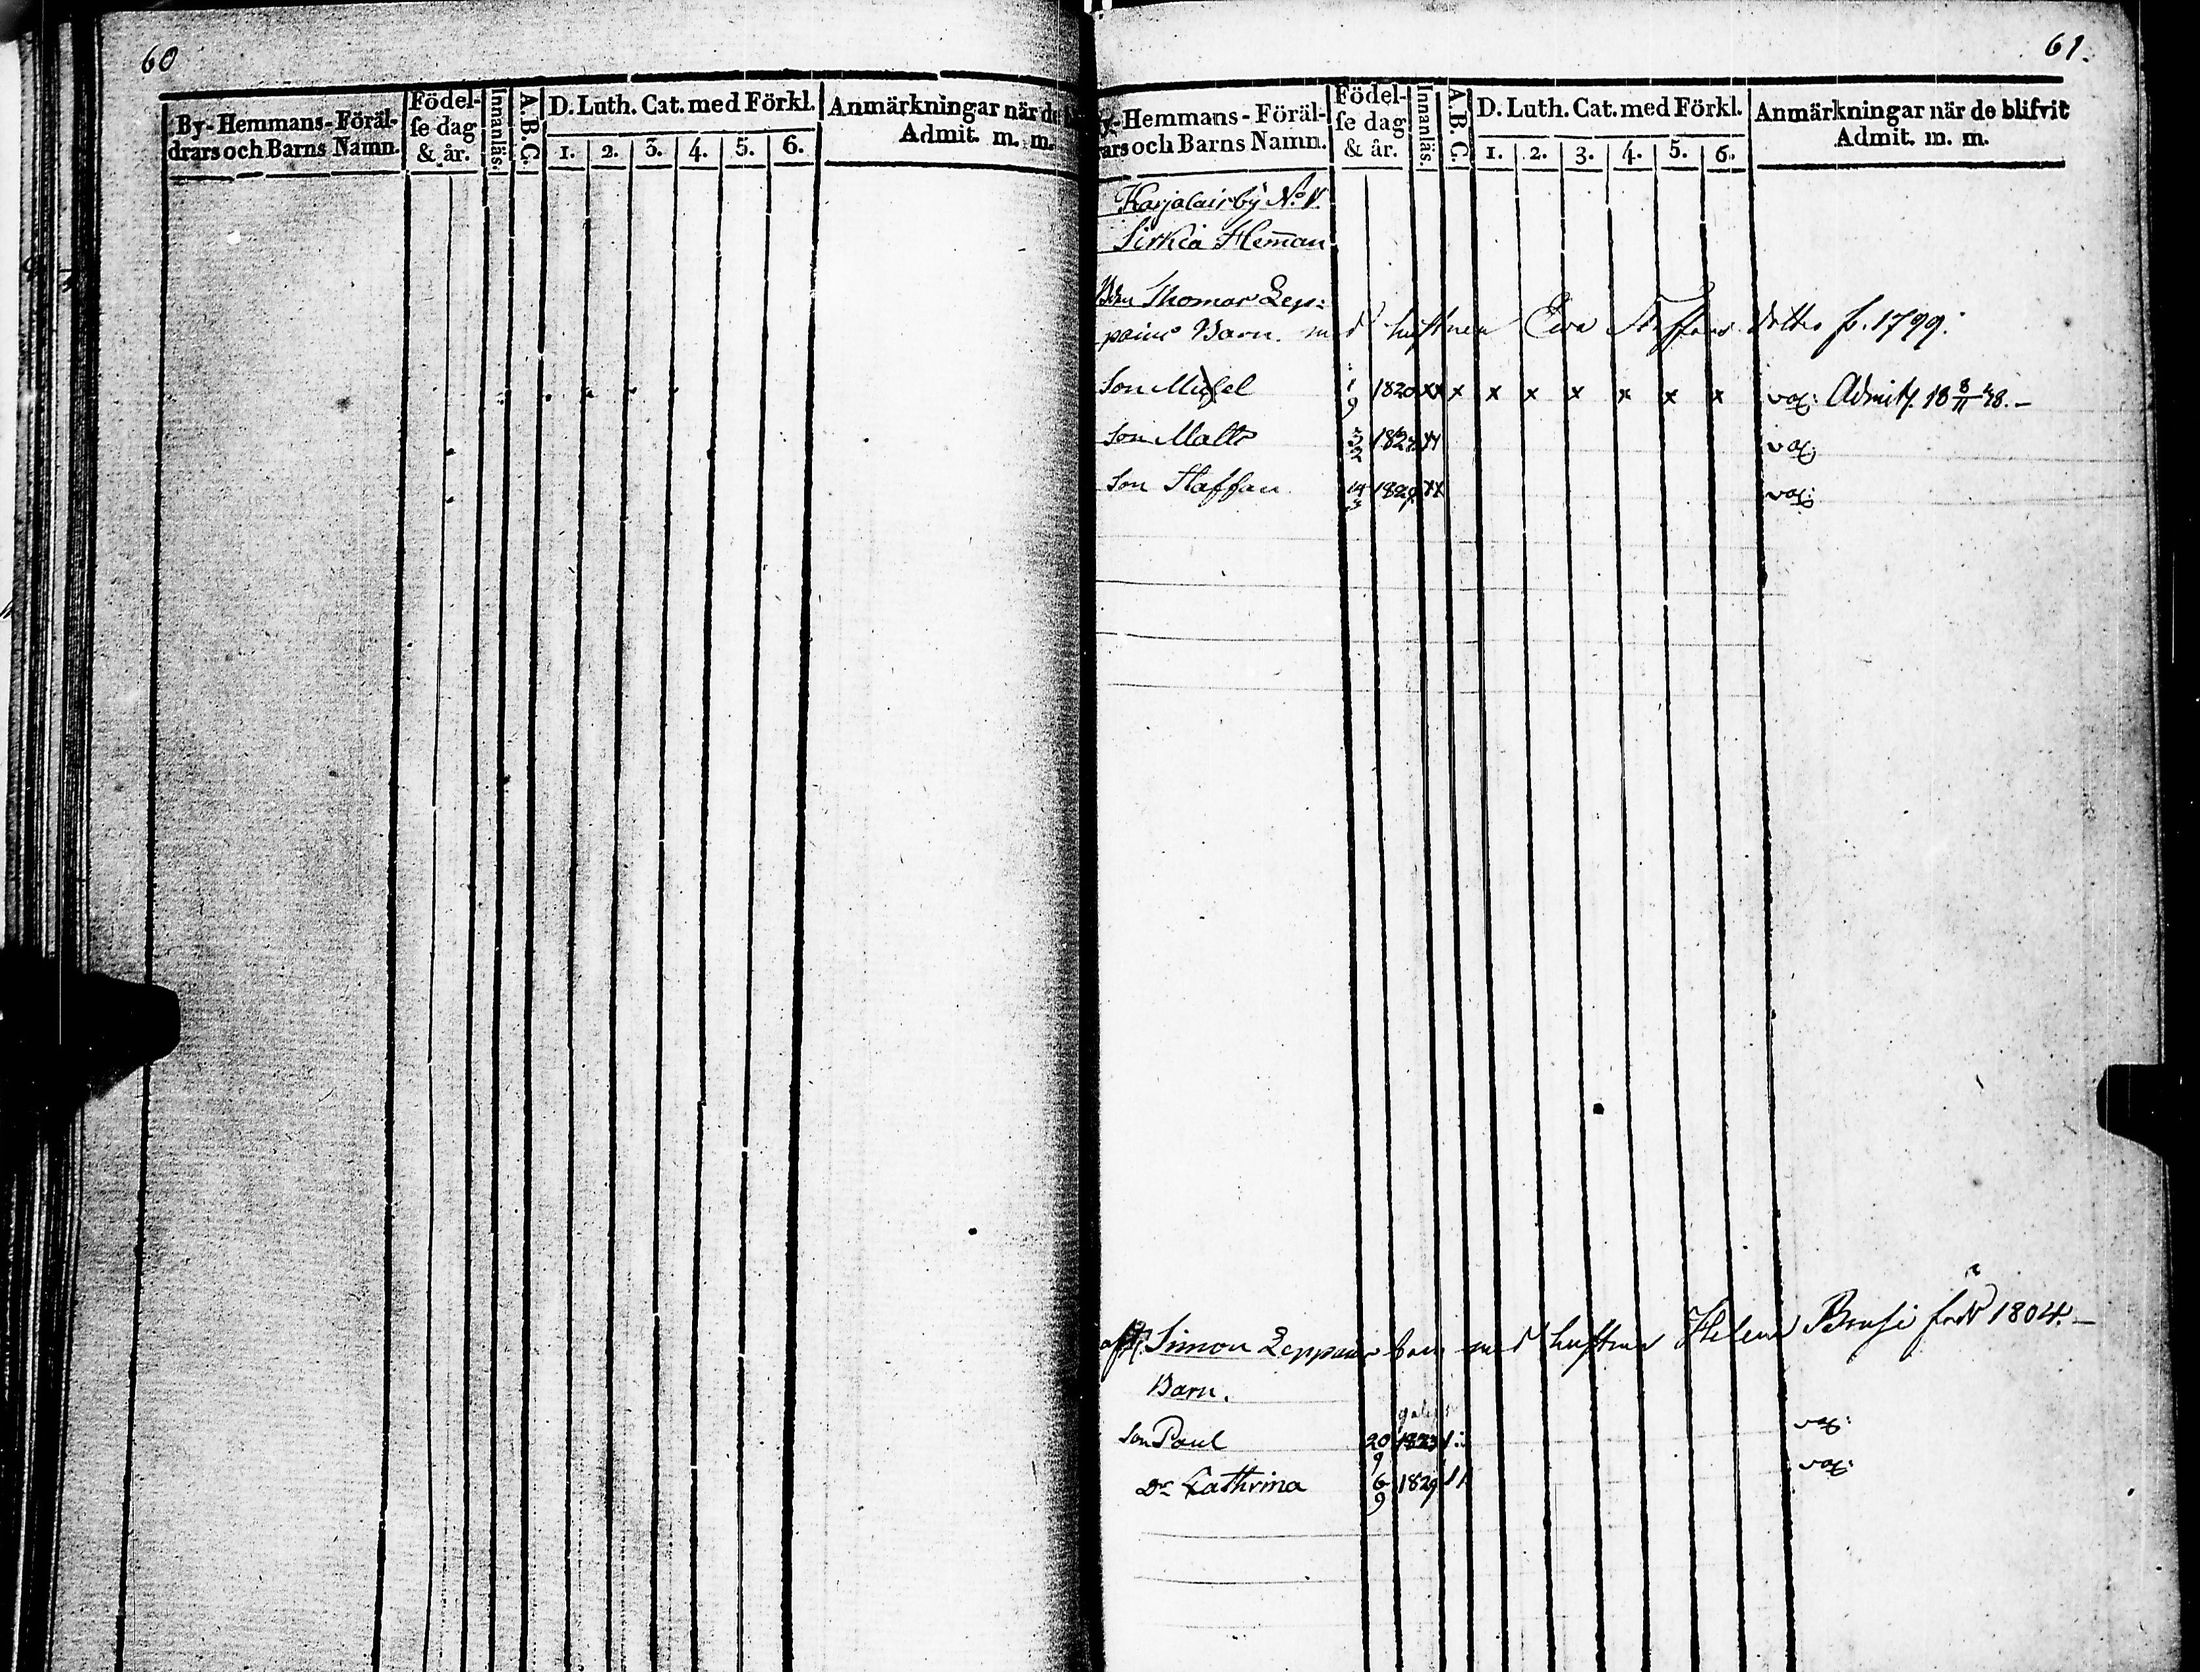 60
By-Hemmans-Föräl-
drars och Barns Namn.
Födel-
se dag
& år.
Innanläs.
A.B.C.
D. Luth. Cat. med Förkl.
1. 2. 3. 4. 5. 6.
Anmärkningar när de
Admit. m. m.
61.
y-Hemmans-Föräl-
rars och Barns Namn.
Födel-
se dag
& år.
Innanläs.
A.B.C.
D. Luth. Cat. med Förkl.
1. 2. 3. 4. 5. 6.
Anmärkningar när de blifvit
Admit. m. m.
Karjalaisby No
Sirkiä Heman
Thomas Lep:
pains Barn. med hustrun Ewa Staffans dotter f. 1799.
Son Michel 1/9 1820 xx x x x x x x x vax: Admitt. 18 8/11 48.-
Son Matts 3/2 182 vax:
Son Staffan 14/3 1829 xx vax:
Simon Leppains med hustrun Helena född 1804.-
Barn.
Son Paul 20/9 1823 vax:
Dr Cathrina 6/9 1829 vax: